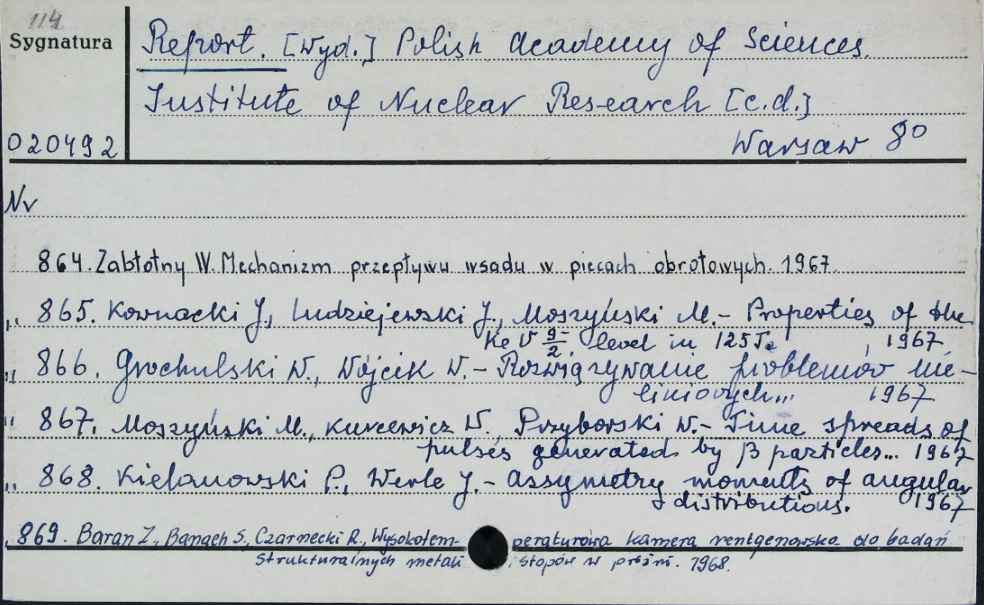 114
Sygnatura
Report. [Wyd.] Polish Academy of Sciences.
Institute of Nuclear Research [c.d.]
020492
Warsaw 8°
Nr
864. Zabłotny W. Mechanizm przepływu wsadu w piecach obrotowych. 1967.
" 865. Kownacki J., Ludziejewski J., Moszyński M. - Properties of the
KeV 9-/2 level in 125 , 1967
" 866. Grochulski W., Wójcik W. - Rozwiązywanie problemów nie-
liniowych... 1967
" 867. Moszyński M., Kurcewicz W., Przyborski W. - Time spreads of
pulses generated by β particles... 1967
" 868. Kielanowski P., Werle J. - Assymetry moments of angular
distributions. 1967
869. Baran Z., Banach S., Czarnecki R., Wysokotem- peraturowa kamera rentgenowska do badań
strukturalnych metali , stopów w próżni. 1968.